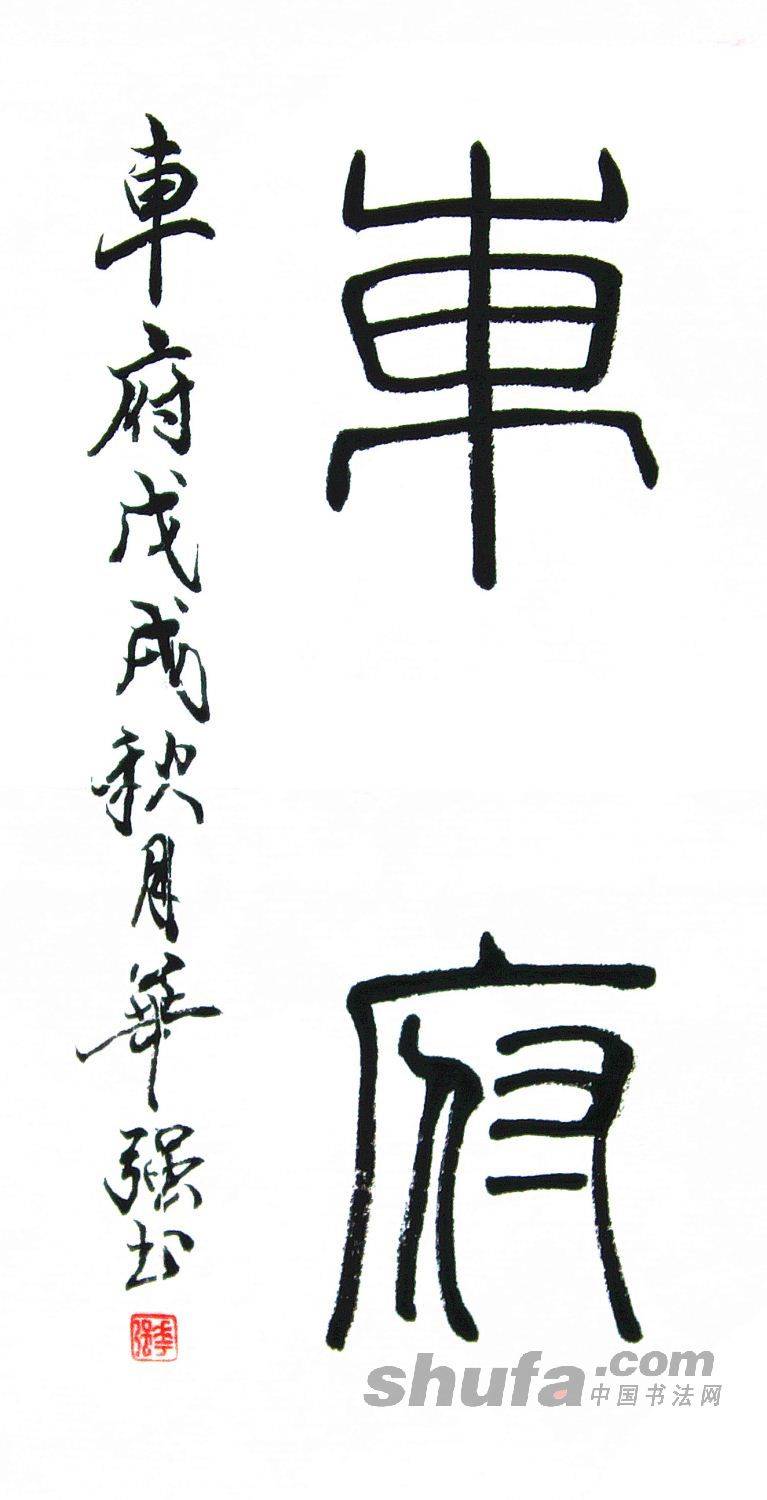 車府
車府戊戌秋月華强书
shufa.com
中国书法网